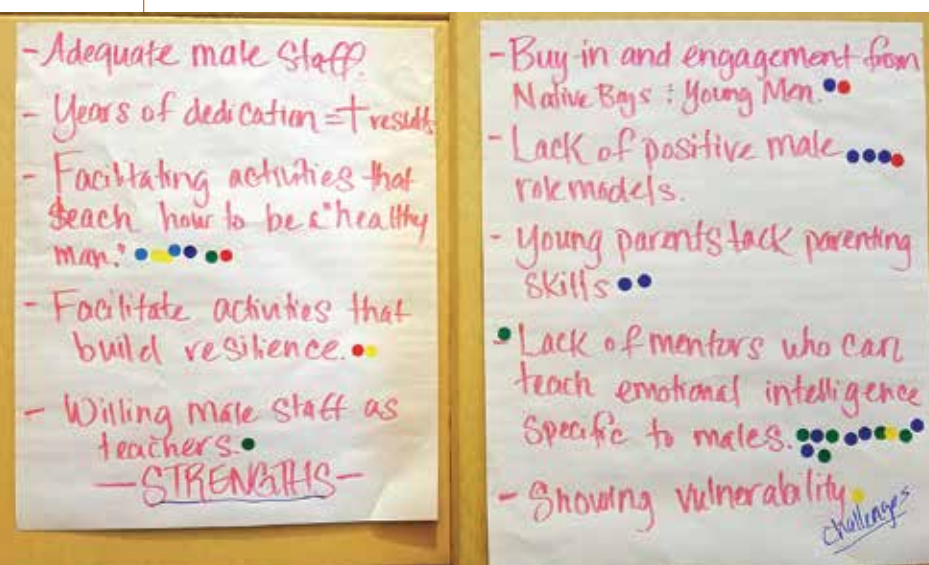 - Adequate male Staff.
- Years of dedication = + results
- Facilitating activities that
teach how to be a "healthy
man."
- Facilitate activities that
build resilience.
- Willing male staff as
teachers.
- STRENGTHS -
- Buy-in and engagement from
Native Boys : Young Men.
- Lack of positive male
role models.
- Young parents lack parenting
skills
- Lack of mentors who can
teach emotional intelligence
specific to males.
- Showing vulnerability
challenges